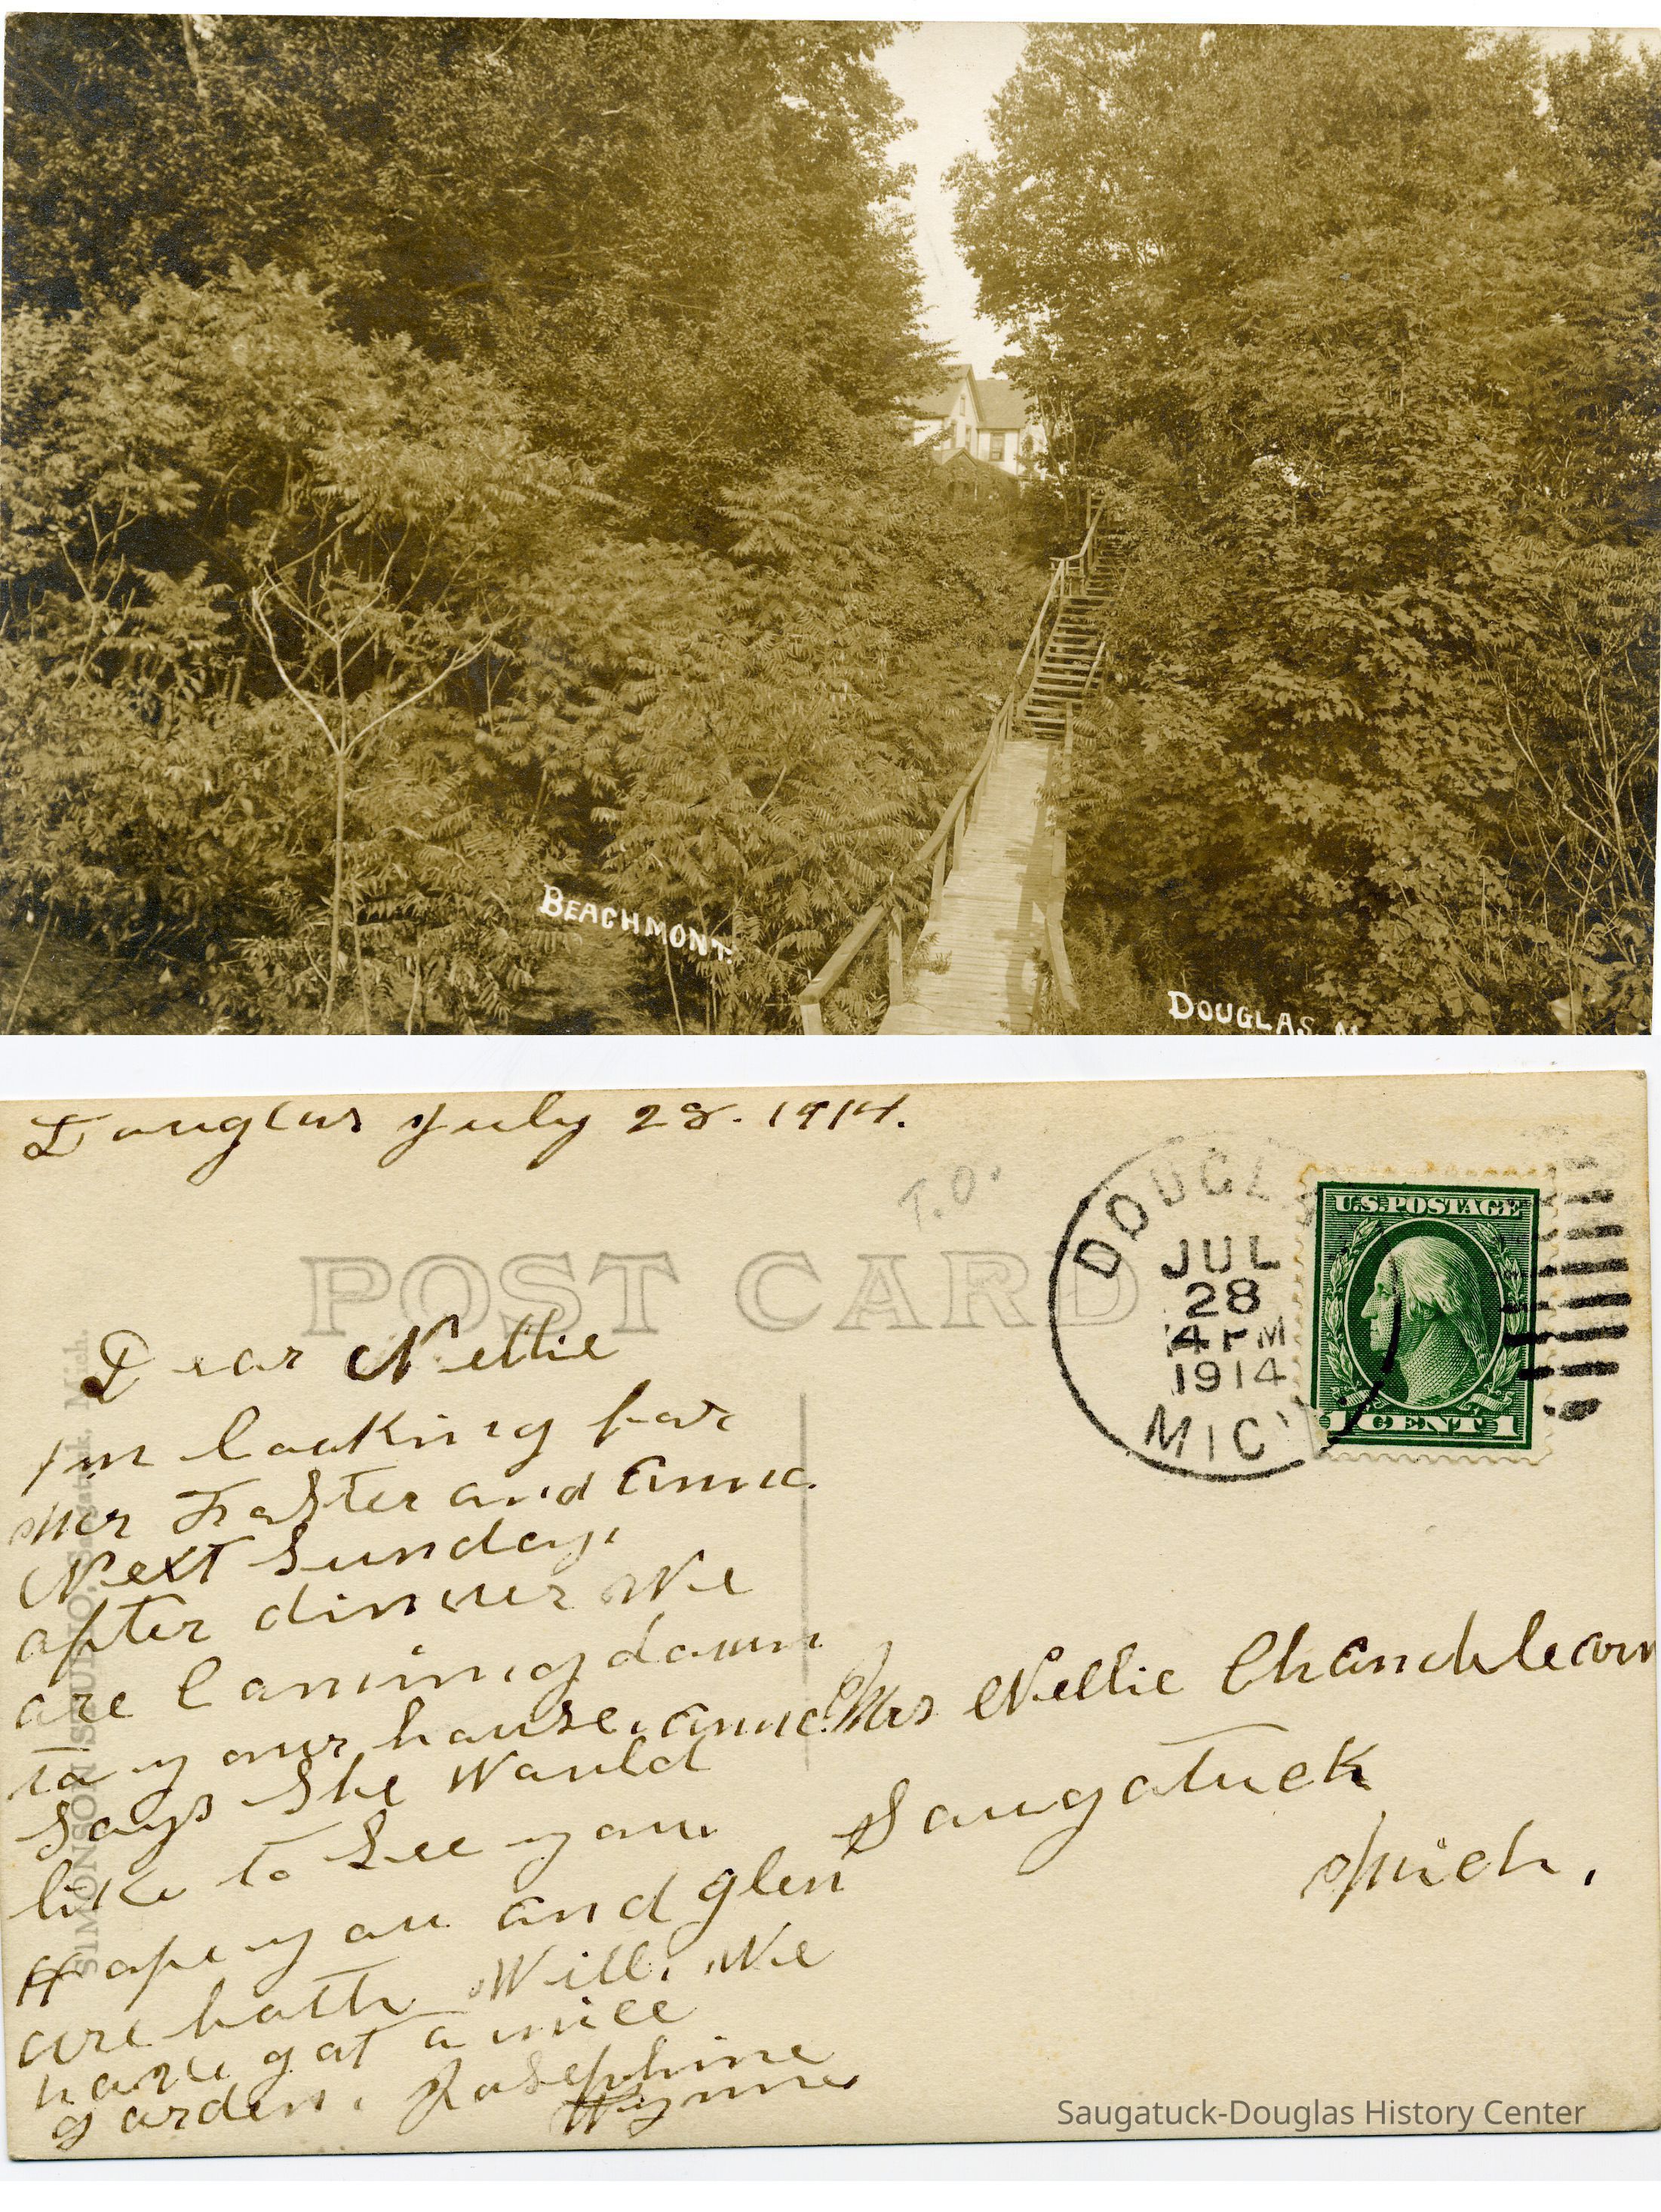 BEACHMONT.
DOUGLAS M
Douglas July 28. 1914.
T.O.
POST CARD
DOUGLAS
JUL
28
4 PM
1914
MICH
U.S. POSTAGE
1 CENT 1
SIMONSON STUDIO, Saugatuck, Mich.
Dear Nellie
I'm looking for
Mr Foster and Anna.
Next Sunday,
after dinner We
are Coming down
to your house, Anna.
Says She Would
like to See you
Hope you and Glen
are both Well. We
have got a nice
garden. Josephine
Wynne
Mrs Nellie
Saugatuck
Mich.
Saugatuck-Douglas History Center